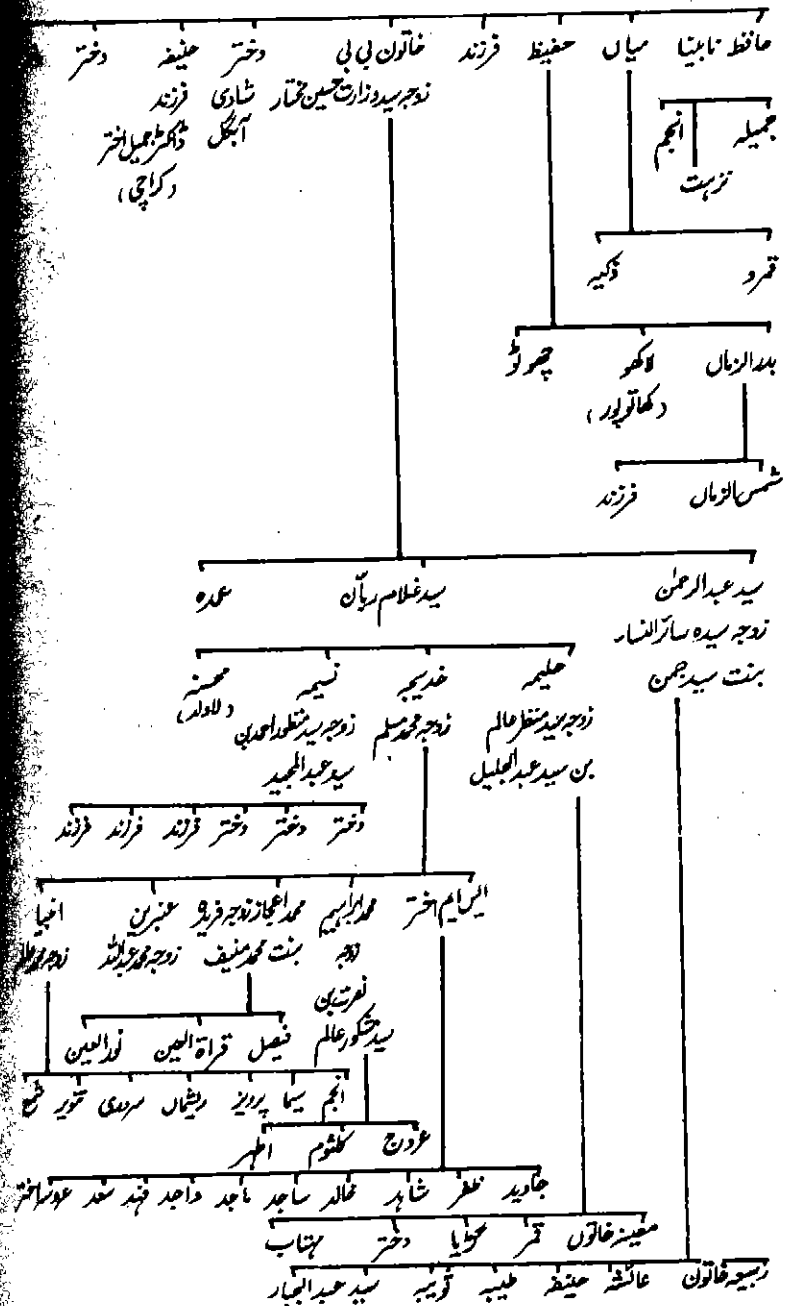 حافظ نابینا میاں حفیظ فرزند خاتون بی بی دختر حنیفہ دختر
زوجہ سید وزارت حسین مختار شادی فرزند
آبگل ڈاکٹر جمیل اختر
(کراچی)
جمیلہ انجم
نزہت
قمرو ذکیہ
بدرالزماں لاکھو چھوٹو
(کھاتوپور)
شمس الزماں فرزند
سید عبدالرحمٰن سید غلام ربّان عمدہ
زوجہ سیدہ سائرالنساء
بنت سید جمن
حلیمہ خدیجہ نسیمہ محسنہ
زوجہ سید منظر عالم زوجہ محمد مسلم زوجہ سید منظور احمد بن (لاولد)
بن سید عبدالجلیل سید عبدالمجید
دختر دختر دختر فرزند فرزند فرزند
ایس ایم اختر محمد ابراہیم محمد اعجاز زوجہ فریدہ عنبرین
زوجہ بنت محمد منیف زوجہ محمد عبداللہ زوجہ محمد
نصرت بن
سید شکور عالم
فیصل قراۃ العین نورالعین
انجم سیما پرویز ریشماں سرمدی تنویر شمع
عروج کلثوم اطہر
جاوید ظفر شاہد خالد ساجد ماجد واجد فہد سعد
معینہ خاتون قمر دختر مہتاب
ربیعہ خاتون عائشہ حنیفہ طیبہ ثویبہ سید عبدالجبار